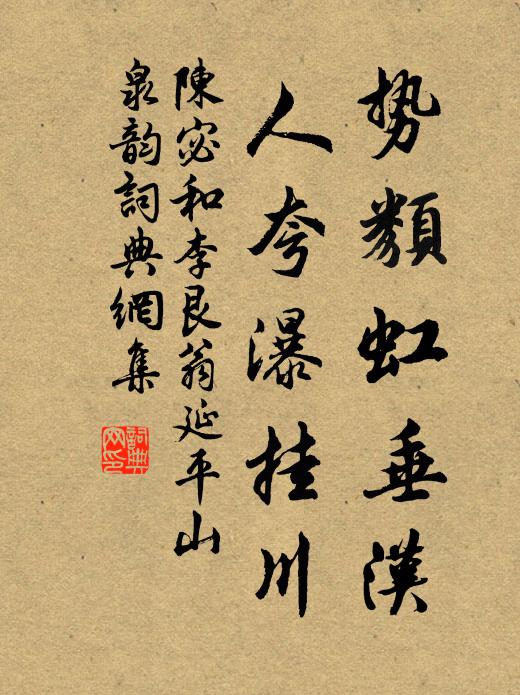 势類虹垂漢
人夸瀑挂川
陳宓和李艮翁延平山
泉韵詞典網集
詞典網印